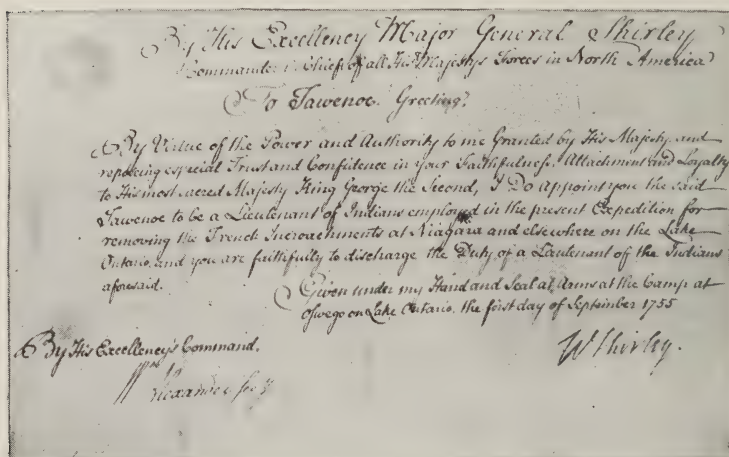 By His Excellency Major General Shirley
Commander in Chief of all His Majestys Forces in North America
To Tawenoe. Greeting.
By Virtue of the Power and Authority to me Granted by His Majesty, and
reposing especial Trust and Confidence in your Faithfulness, Attachment and Loyalty
to His most sacred Majesty King George the Second, I Do appoint you the said
Tawenoe to be a Lieutenant of Indians employed in the present Expedition for
removing the French Incroachments at Niagara and elsewhere on the Lake
Ontario, and you are faithfully to discharge the Duty of a Lieutenant of the Indians
aforesaid.
Given under my Hand and Seal at Arms at the Camp at
Oswego on Lake Ontario, the first day of September 1755
By His Excellency's Command.
W Shirley.
Wm Alexander Secy